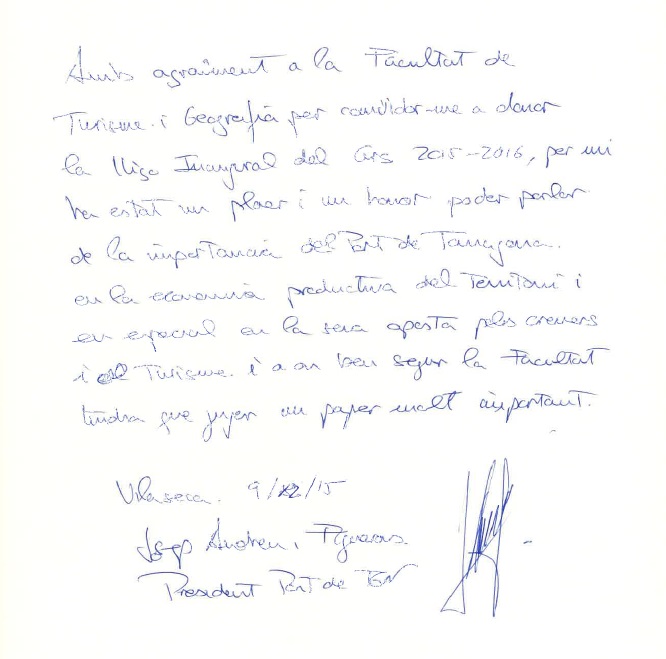 Amb agraïment a la Facultat de
Turisme i Geografia per convidar-me a donar
la lliço Inaugural del Curs 2015-2016, per mi
ha estat un plaer i un honor poder parlar
de la importancia del Port de Tarragona.
en la economia productiva del Territori i
en especial en la seva aposta pels creuers
i el Turisme. i a on ben segur la Facultat
tindra que jugar un paper molt important.
Vilaseca. 9/12/15
Josep Andreu i Figueras
President Port de TGN